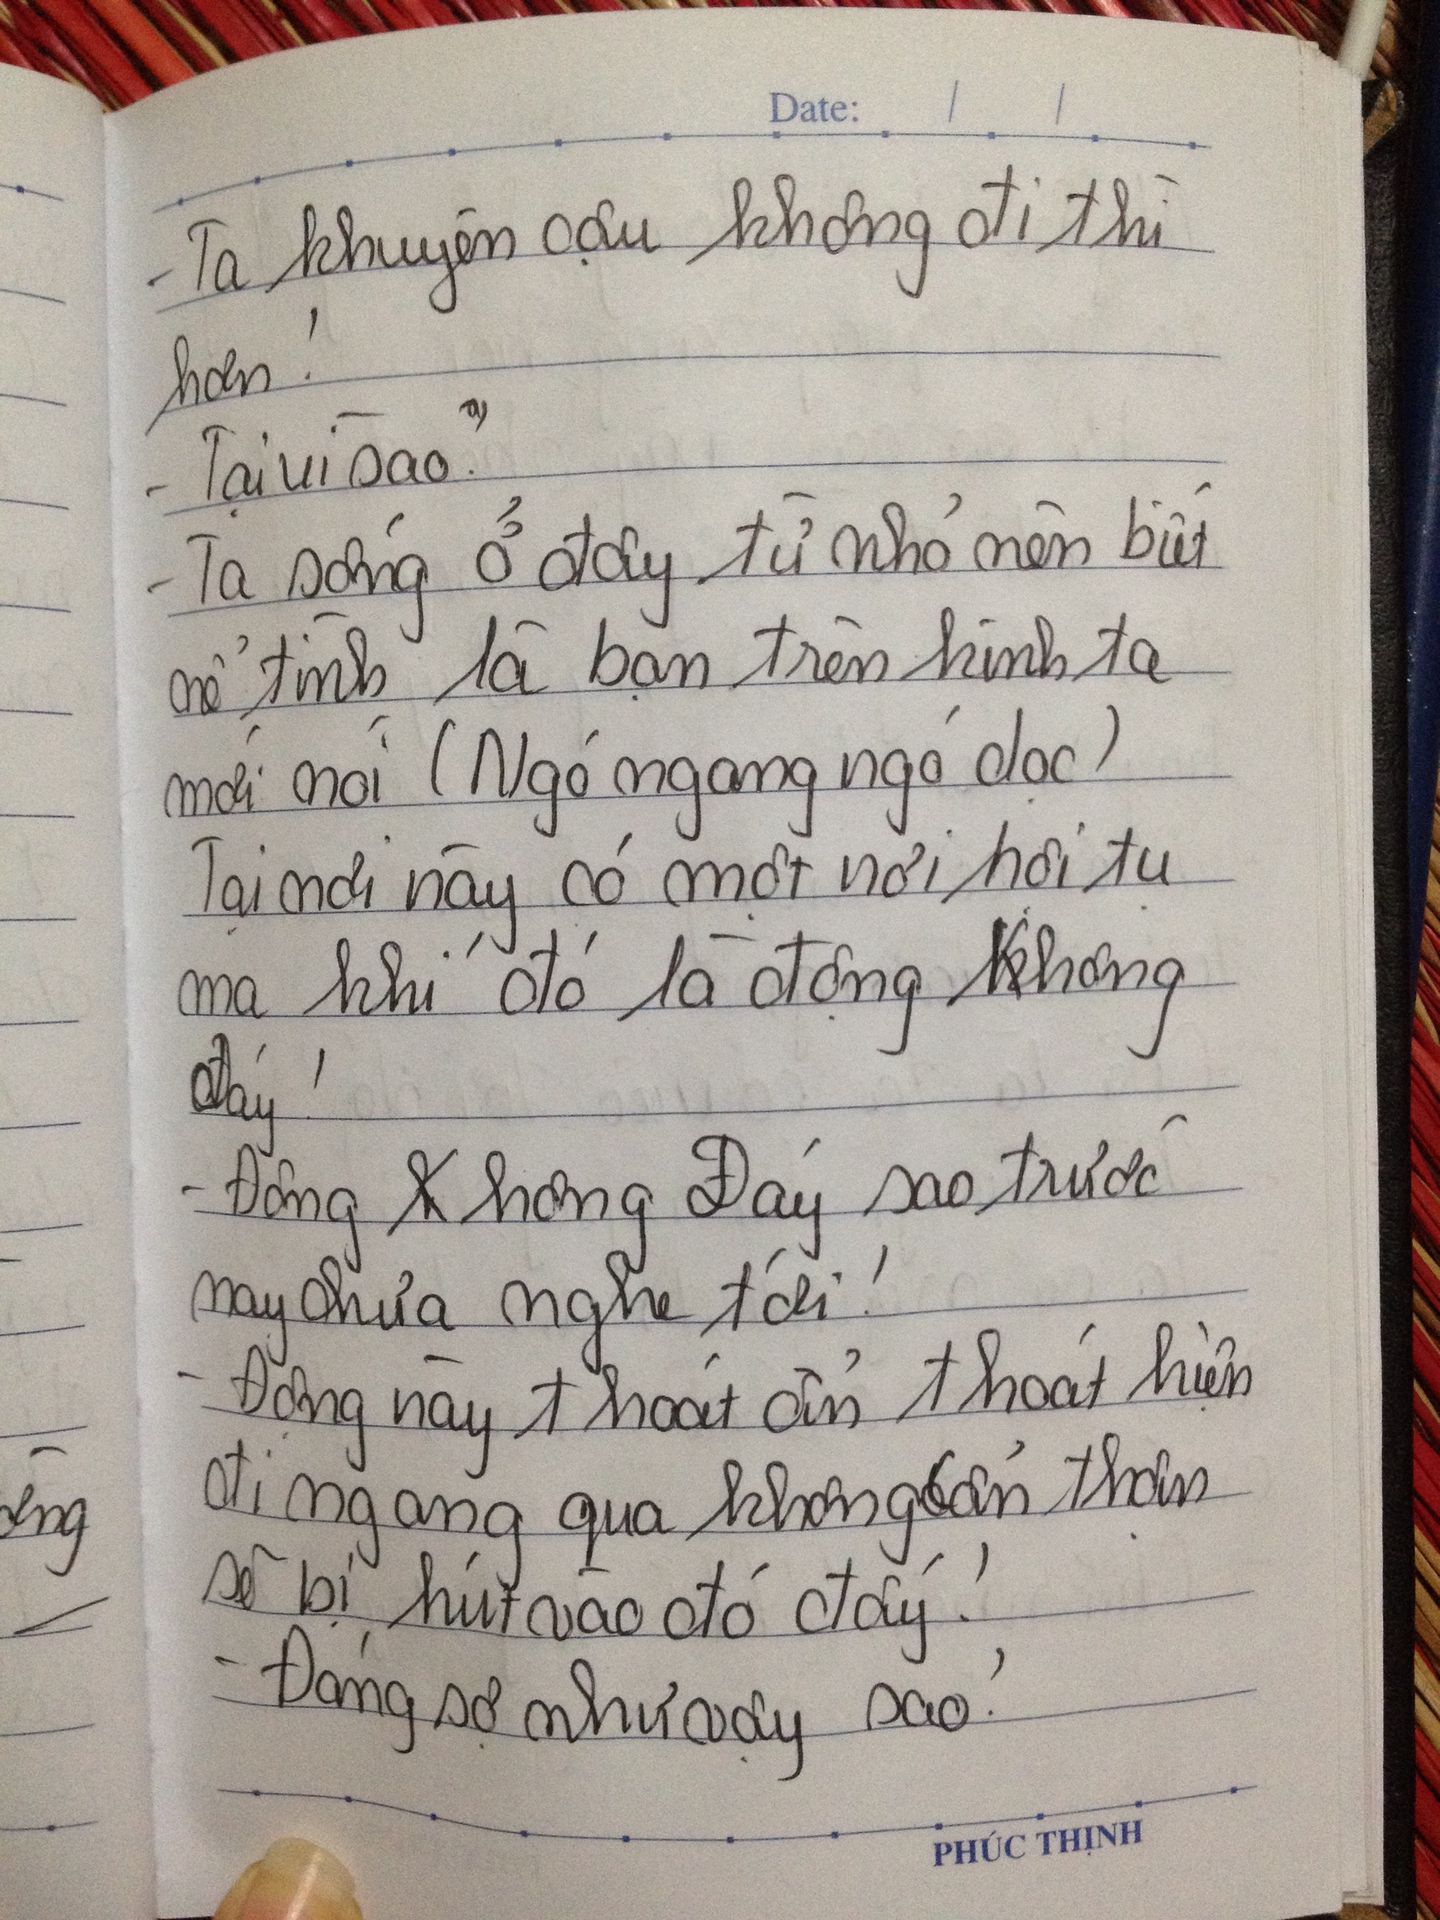 Date: / /
- Ta khuyên cậu không đi thì
hơn!
- Tại vì sao?
- Ta sống ở đây từ nhỏ nên biết
nể tình là bạn trên kinh ta
mới nói (Ngó ngang ngó dọc)
Tại nơi này có một nơi hội tụ
ma khí đó là động không
đáy!
- Động Không Đáy sao trước
nay chưa nghe tới!
- Động này thoát ẩn thoát hiện
đi ngang qua không cẩn thận
sẽ bị hút vào đó đấy!
- Đáng sợ như vậy sao!
ờng
PHÚC THỊNH